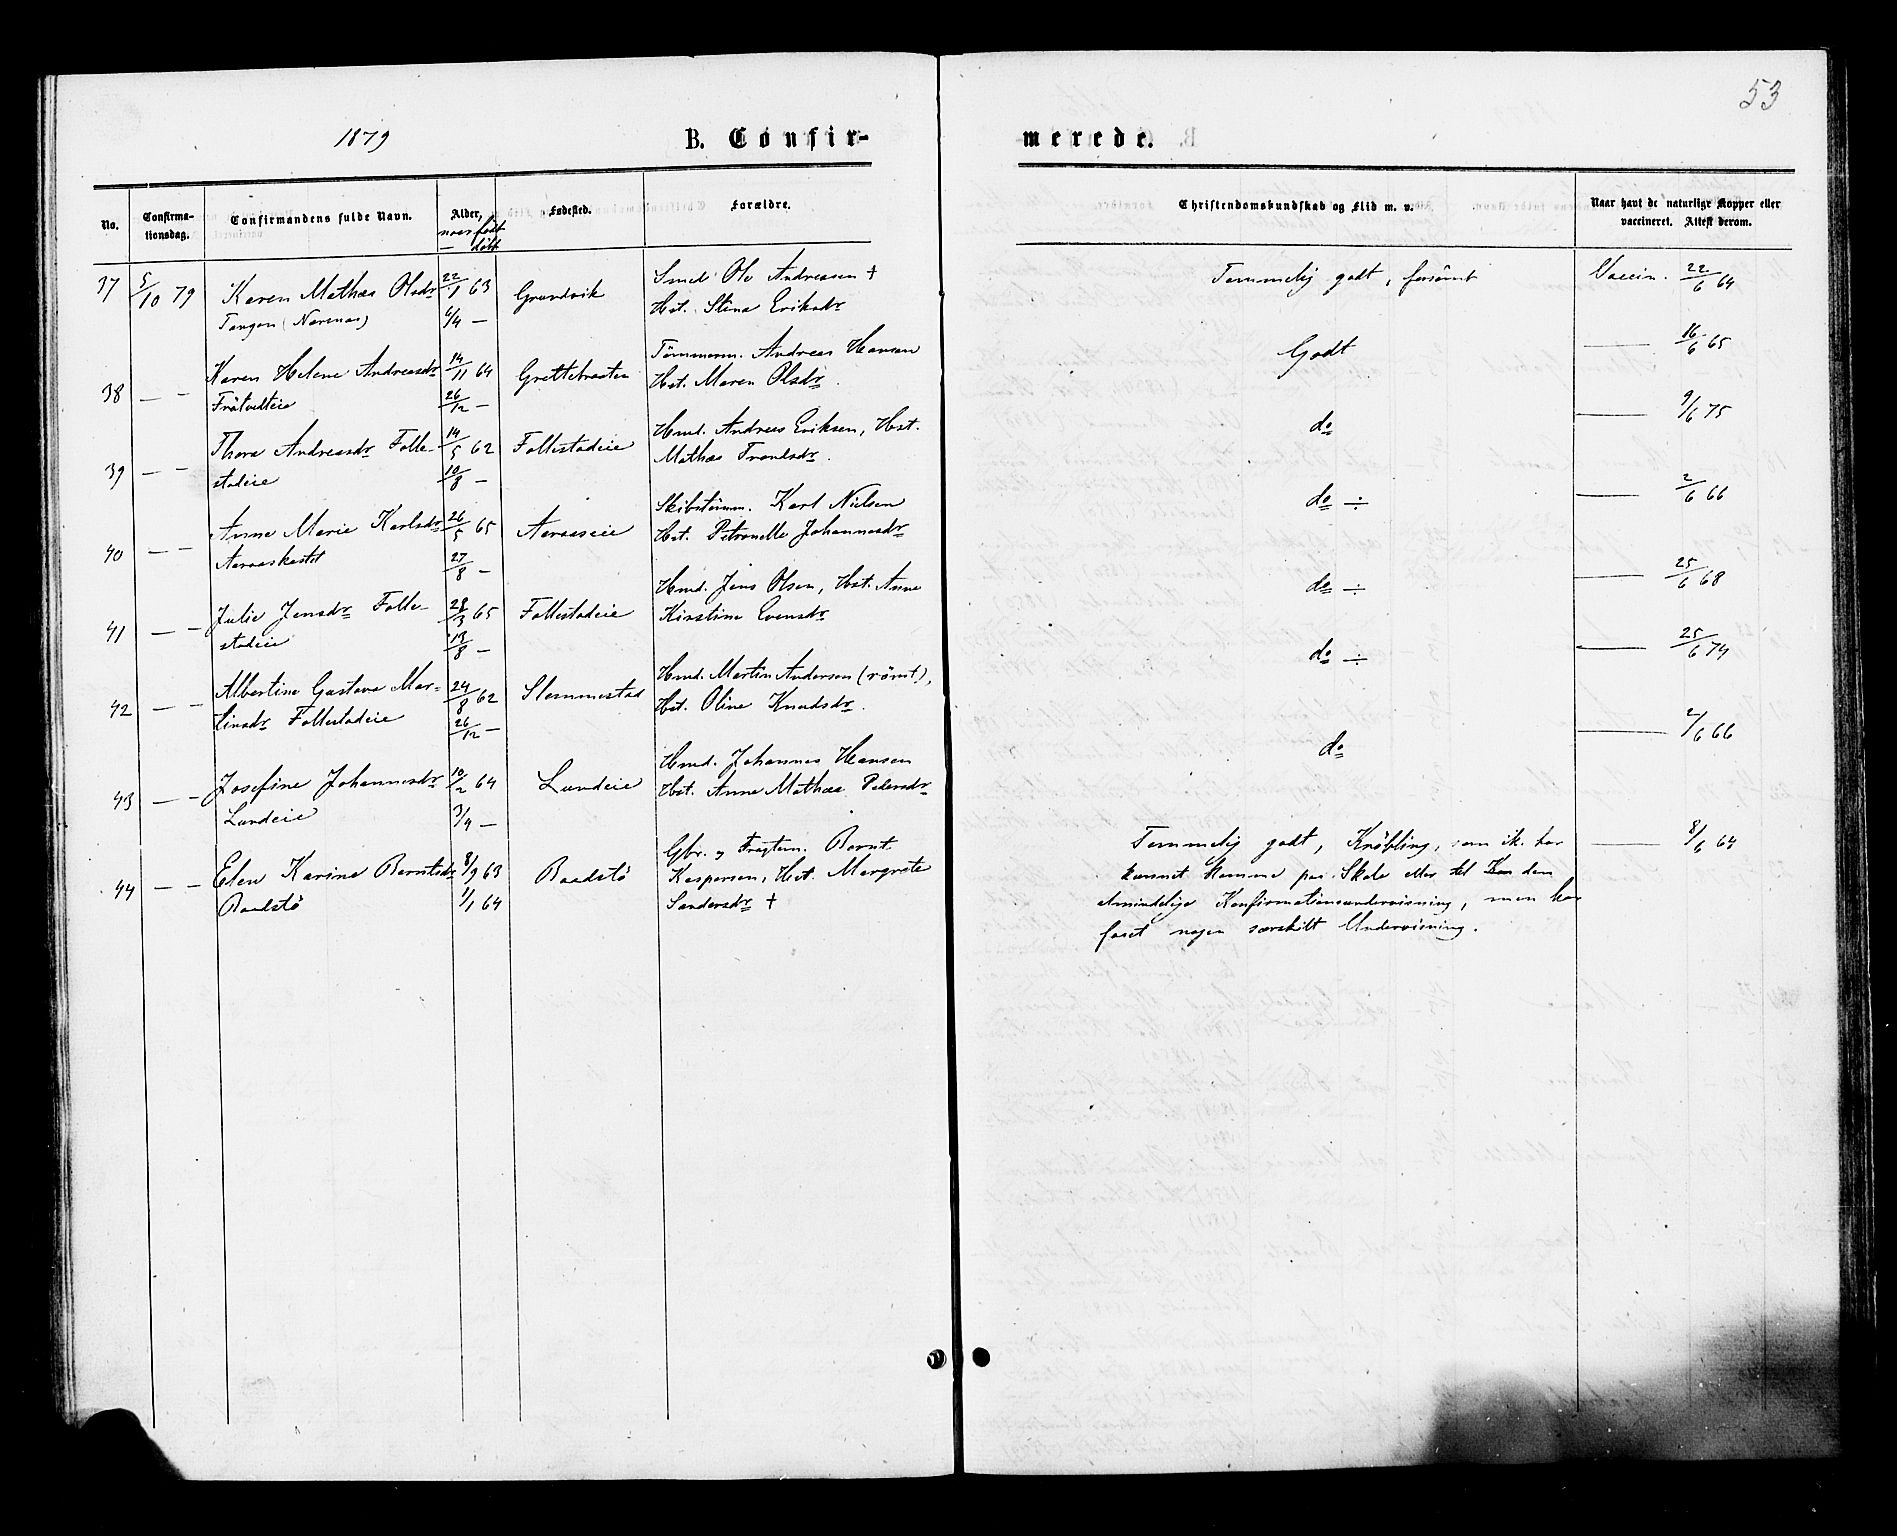 53
1879
B. Confir-
merede.
No.
Confirma-
tionsdag.
Confirmandens fulde Navn.
Alder,
naar født
— døbt
Fødested.
Forældre.
Christendomskundskab og Flid m. v.
Naar havt de naturlige Kopper eller
vaccineret. Attest derom.
37 5/10 79 Karen Mathea Olsdr 22/1 63 Grundvik Smed Ole Andreasen † Temmelig godt, forsömt Vaccin. 22/6 64
Tangen (Nærsnæs) 6/4 — Hst. Stina Eriksdr
38 — — Karen Helene Andreasdr 14/11 64 Grettebraaten Tömmerm. Andreas Hansen Godt — 16/6 65
Fråtvedteie 26/12 — Hst. Maren Olsdr.
39 — — Thora Andreasdr Folle- 14/5 62 Follestadeie Hmd. Andreas Eriksen, Hst. do — 9/6 75
stadeie 10/8 — Mathea Trondsdr.
40 — — Anne Marie Karlsdr 26/5 65 Aaraaseie Skibstömm. Karl Nielsen do ÷ — 2/6 66
Aaraaskastet 27/8 — Hst. Petronelle Johannesdr
41 — — Julie Jensdr Folle- 28/3 65 Follestadeie Hmd. Jens Olsen, Hst. Anne do ÷ — 25/6 68
stadeie 13/8 — Kirstine Evensdr
42 — — Albertine Gustava Mar- 24/8 62 Slemmestad Hmd. Martin Andersen (römt), do ÷ — 25/6 74
tinsdr Follestadeie 26/12 — Hst. Oline Knudsdr.
43 — — Josefine Johannesdr 10/2 64 Lundeie Hmd. Johannes Hansen do — 2/6 66
Lundeie 3/4 — Hst. Anne Mathea Pedersdr
44 — — Elen Karine Berntsdr 8/9 63 Baadstö Gbr. og Fragtem. Bernt Temmelig godt, Kröbling, som ik. har — 8/6 64
Baadstö 1/1 64 Kaspersen, Hst. Margrete kunnet komme paa Skole eller til den
Sandersdr † almindelige Konfirmationsundervisning, men har
faaet nogen særskilt Undervisning.